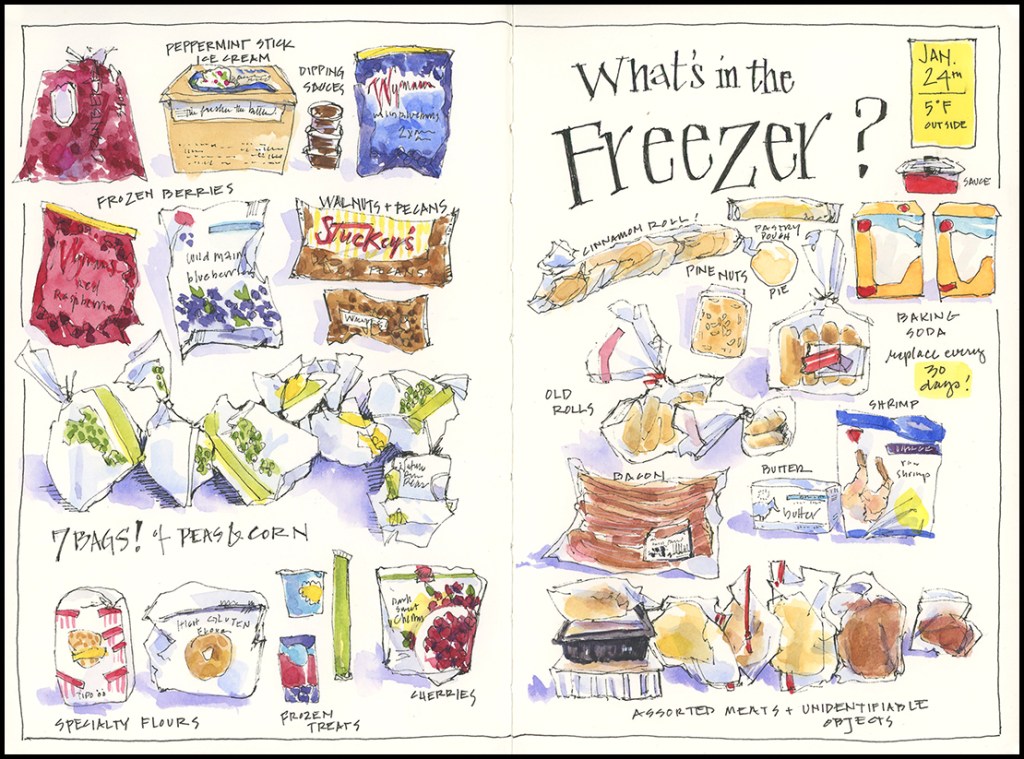 PEPPERMINT STICK
ICE CREAM
DIPPING
SAUCES
Wyman's
FROZEN BERRIES
Wyman's
red
Raspberries
wild maine
blueberries
WALNUTS + PECANS
Stuckey's
PECANS
7 BAGS! of PEAS & CORN
HIGH GLUTEN
TIPO 00
SPECIALTY FLOURS
FROZEN
TREATS
Dark
Sweet
CHERRIES
What's in the
Freezer?
JAN.
24TH
5°F
OUTSIDE
SAUCE
CINNAMON ROLL!
PASTRY
DOUGH
PIE
PINE NUTS
BAKING
SODA
replace every
30
days!
OLD
ROLLS
SHRIMP
raw
shrimp
BACON
BUTTER
butter
ASSORTED MEATS + UNIDENTIFIABLE
OBJECTS